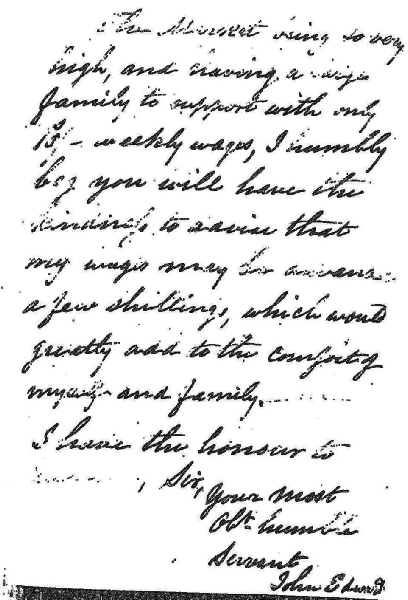 The Market being so very
high, and having a large
family to support with only
15/- weekly wages, I humbly
beg you will have the
kindness to advise that
my wages may be advance
a few shillings, which would
greatly add to the comfort of
myself and family.
I have the honour to
, Sir,
Your most
Obt. humble
Servant
John Edward